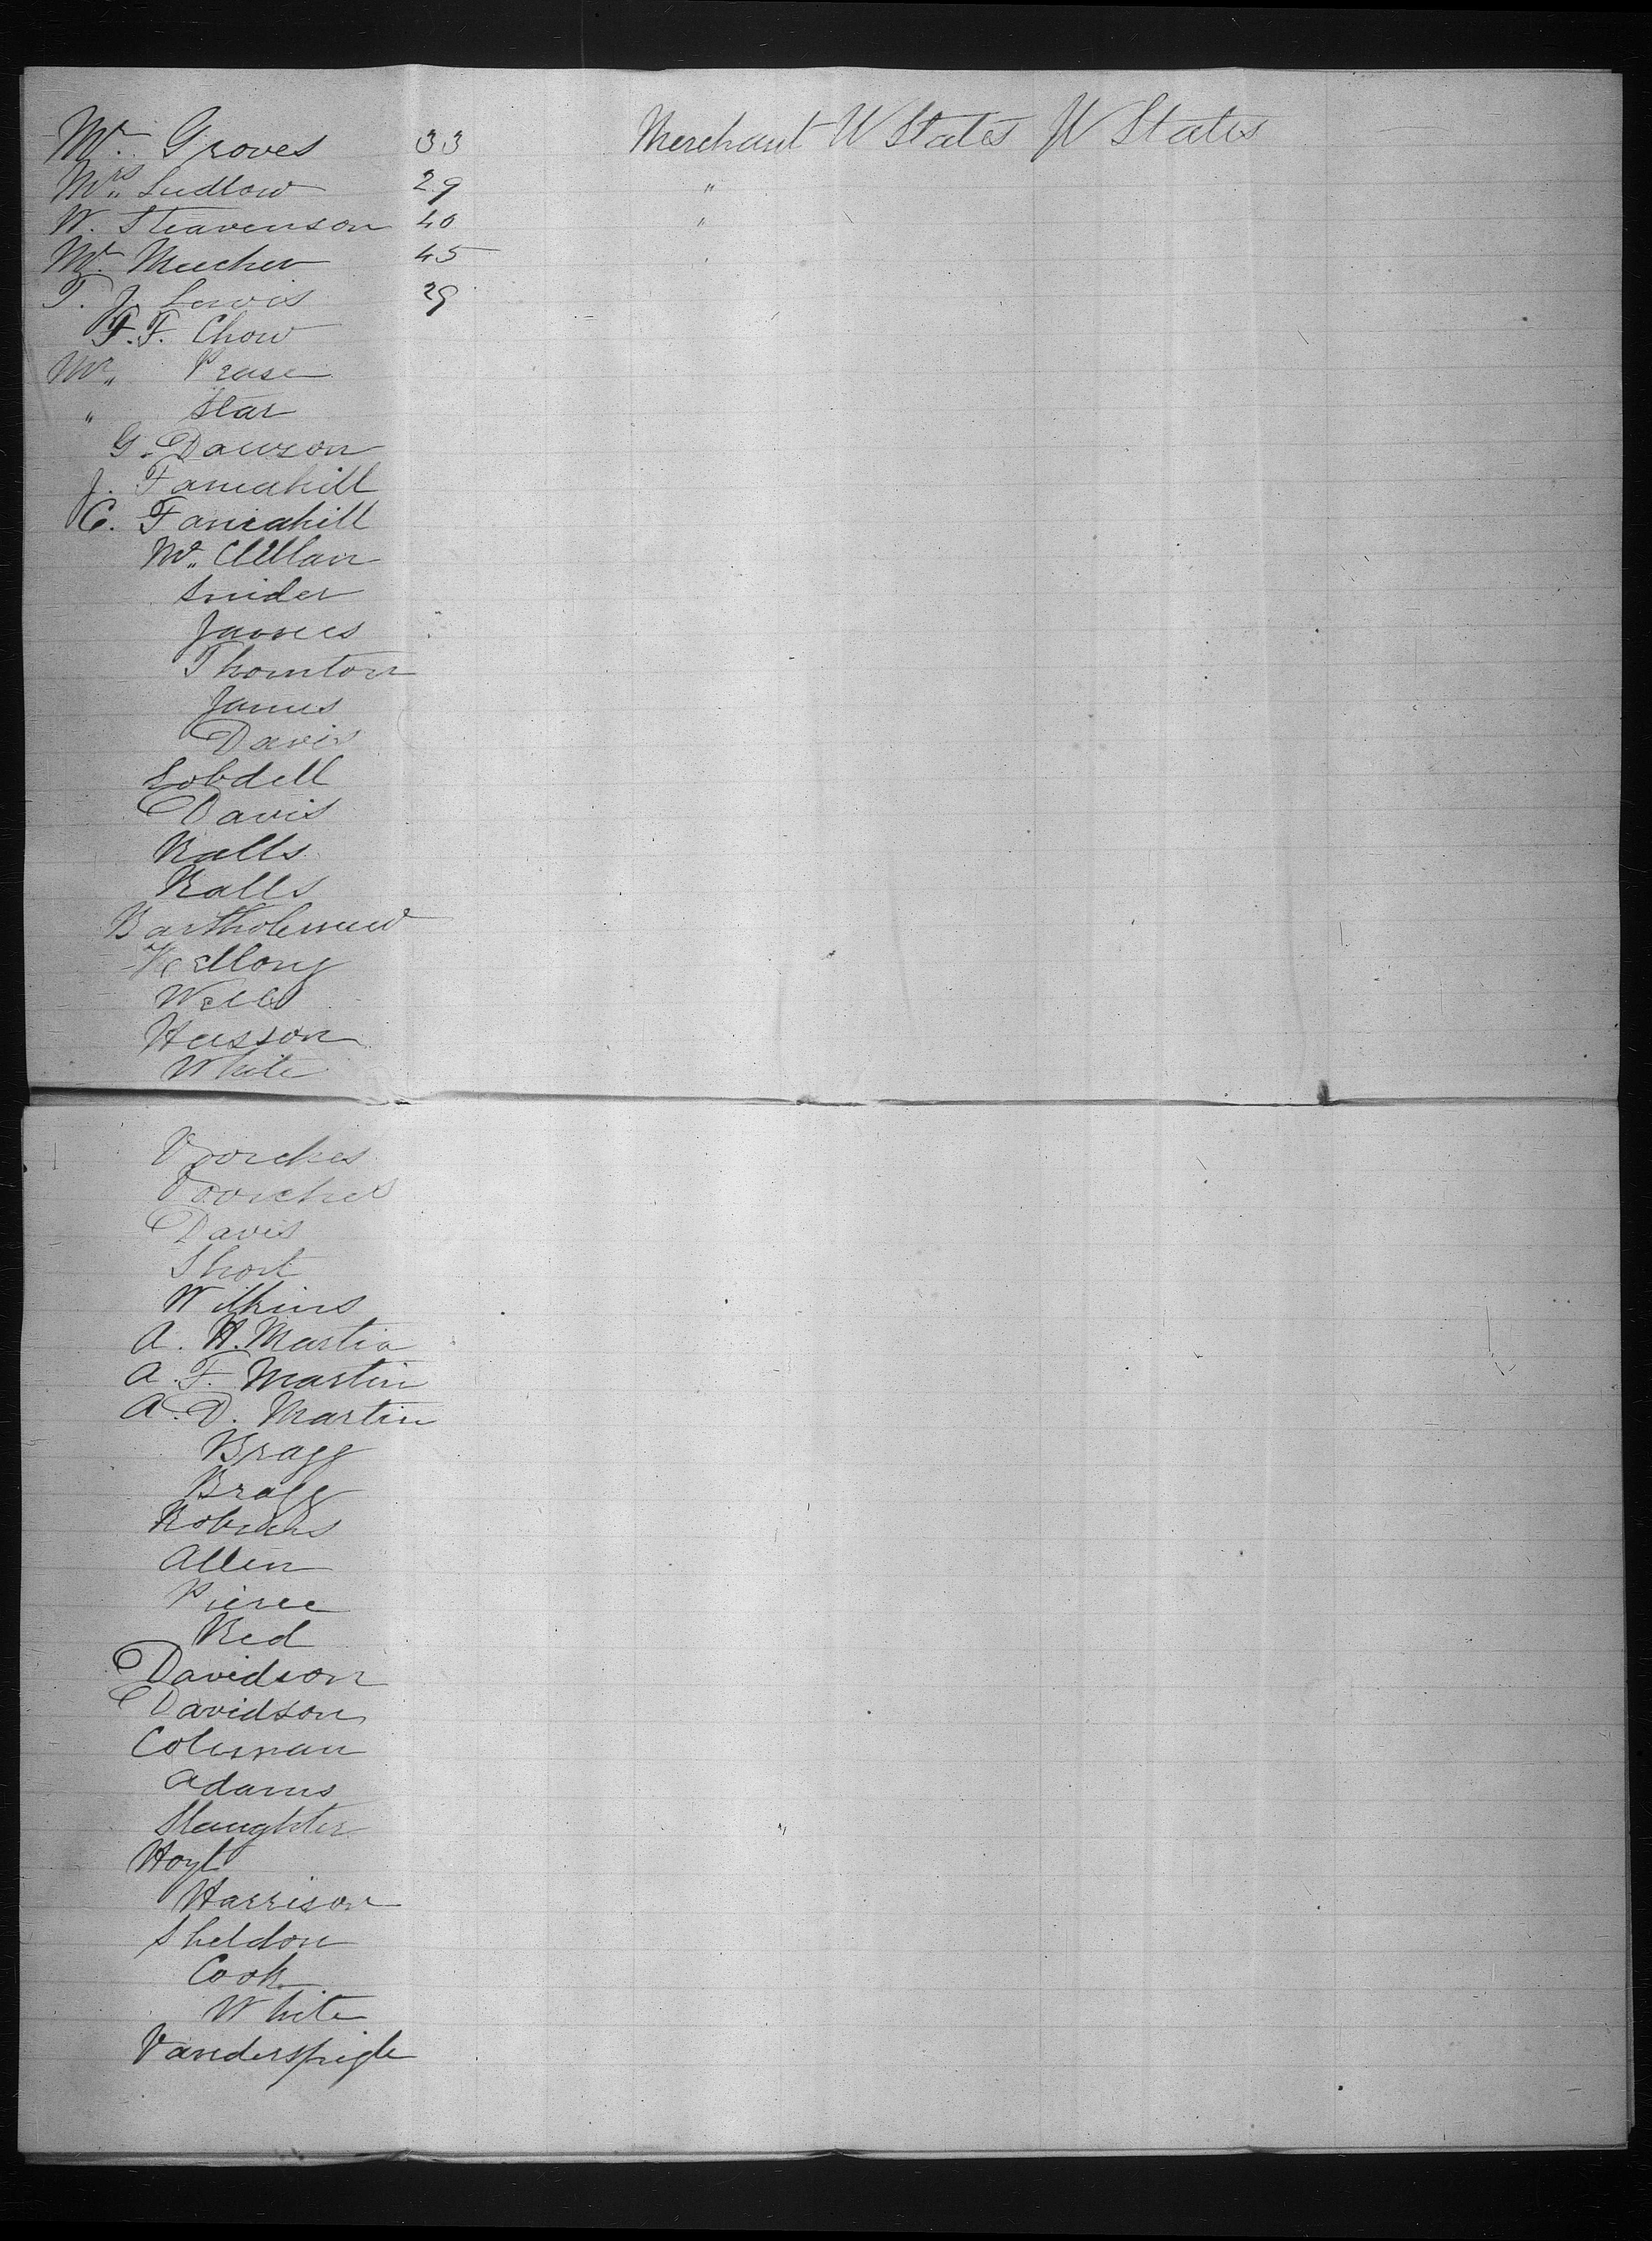 Mr. Groves 33 Merchant U States U States
Mrs. Ludlow 29 "
W. Steavenson 40 "
Mr. Meecher 45
T. J. Lewis 29
F. F. Chow
Mr. Pease
" Star
G. Dawson
J. Tannahill
C. Tannahill
Mc. Clellan
Snider
James
Thornton
James
Davis
Lobdell
Davis
Ralls
Ralls
Bartholemew
Kellony
Wells
Husson
White
Voorhes
Voorhes
Davis
Short
Wilkins
A. H. Martin
A. F. Martin
A. D. Martin
Bragg
Bragg
Allen
Pierce
Red
Davidson
Davidson
Coleman
Adams
Slaughter
Hoyt
Harrison
Sheldon
Cook
White
Vanderspigle